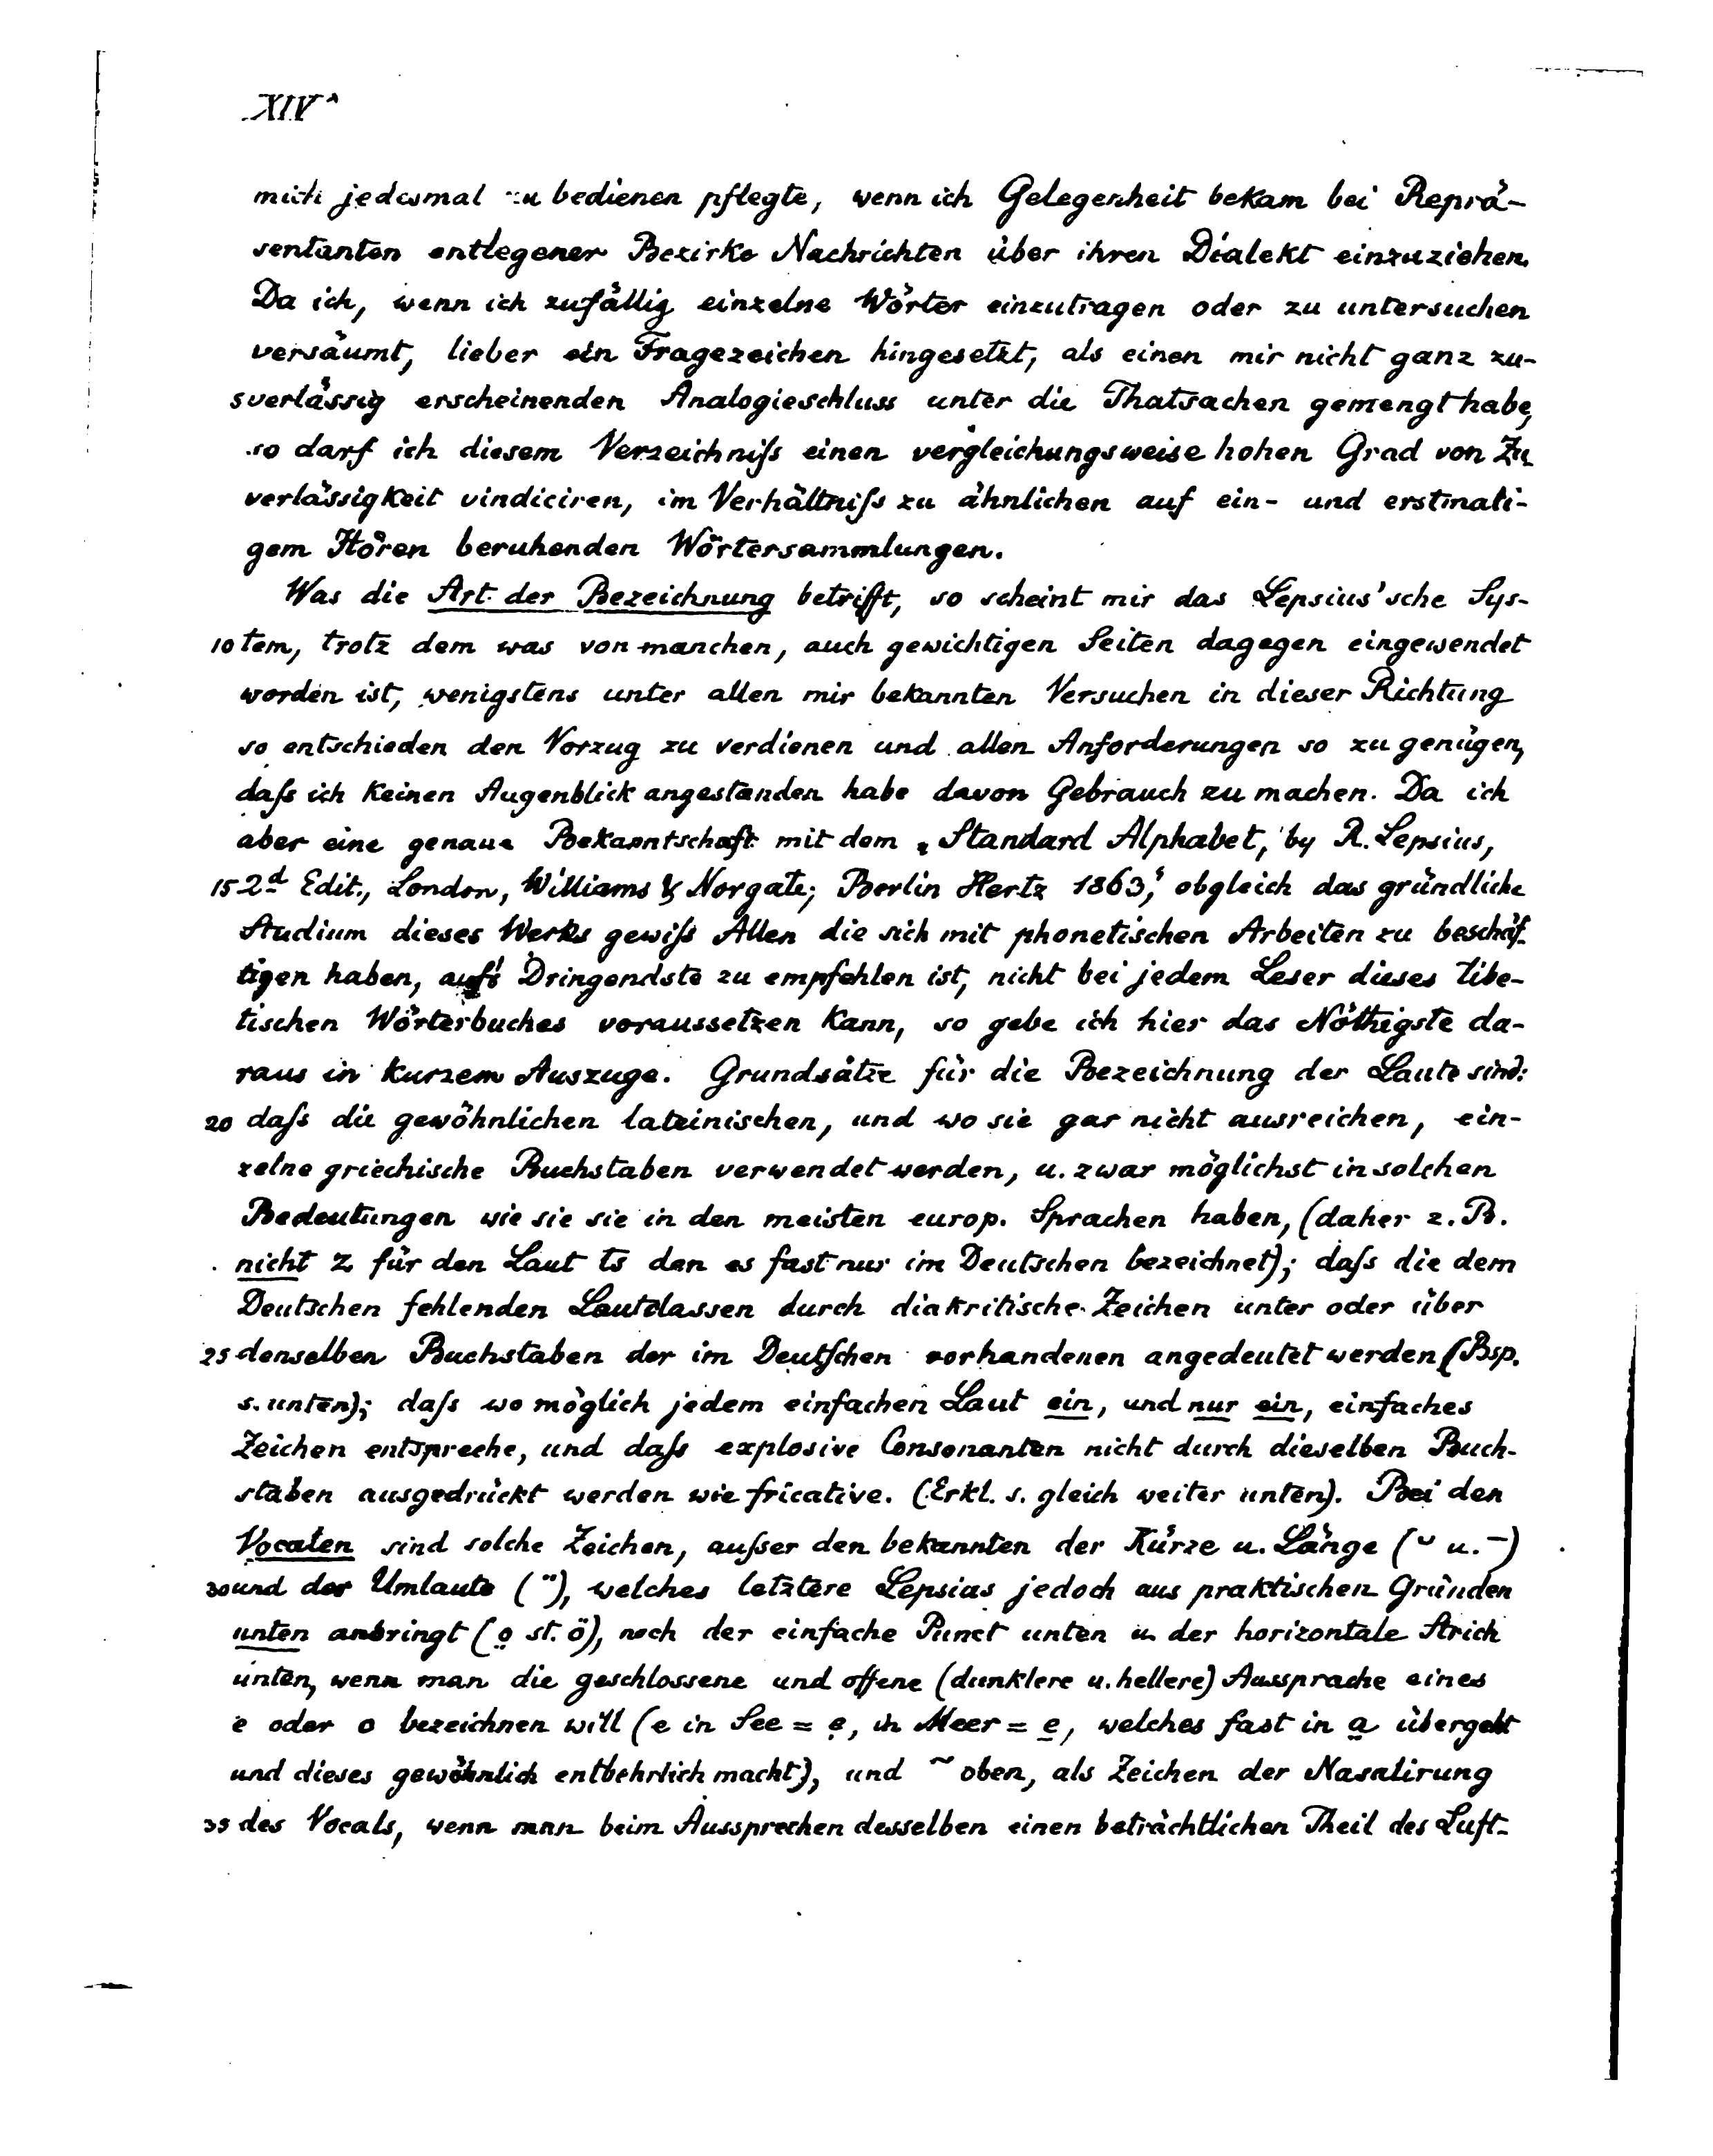 XIV^
mich jedesmal zu bedienen pflegte, wenn ich Gelegenheit bekam bei Reprä-
sentanten entlegener Bezirke Nachrichten über ihren Dialekt einzuziehen.
Da ich, wenn ich zufällig einzelne Wörter einzutragen oder zu untersuchen
versäumt, lieber ein Fragezeichen hingesetzt, als einen mir nicht ganz zu-
5 verlässig erscheinenden Analogieschluss unter die Thatsachen gemengt habe,
so darf ich diesem Verzeichniſs einen vergleichungsweise hohen Grad von Zu
verlässigkeit vindiciren, im Verhältniſs zu ähnlichen auf ein- und erstmali-
gem Hören beruhenden Wörtersammlungen.
Was die Art der Bezeichnung betrifft, so scheint mir das Lepsius'sche Sys-
10 tem, trotz dem was von manchen, auch gewichtigen Seiten dagegen eingewendet
worden ist, wenigstens unter allen mir bekannten Versuchen in dieser Richtung
so entschieden den Vorzug zu verdienen und allen Anforderungen so zu genügen,
daſs ich keinen Augenblick angestanden habe davon Gebrauch zu machen. Da ich
aber eine genaue Bekanntschaft mit dem „Standard Alphabet, by R. Lepsius,
15 2d Edit., London, Williams & Norgate; Berlin Hertz 1863," obgleich das gründliche
Studium dieses Werks gewiſs Allen die sich mit phonetischen Arbeiten zu beschäf-
tigen haben, auf's Dringendste zu empfehlen ist, nicht bei jedem Leser dieses tibe-
tischen Wörterbuches voraussetzen kann, so gebe ich hier das Nöthigste da-
raus in kurzem Auszuge. Grundsätze für die Bezeichnung der Laute sind:
20 daſs die gewöhnlichen lateinischen, und wo sie gar nicht ausreichen, ein-
zelne griechische Buchstaben verwendet werden, u. zwar möglichst in solchen
Bedeutungen wie sie sie in den meisten europ. Sprachen haben, (daher z. B.
nicht z für den Laut ts den es fast nur im Deutschen bezeichnet); daſs die dem
Deutschen fehlenden Lautclassen durch diakritische Zeichen unter oder über
25 denselben Buchstaben der im Deutſchen vorhandenen angedeutet werden (Bsp.
s. unten); daſs wo möglich jedem einfachen Laut ein, und nur ein, einfaches
Zeichen entspreche, und daſs explosive Consonanten nicht durch dieselben Buch-
staben ausgedrückt werden wie fricative. (Erkl. s. gleich weiter unten). Bei den
Vocalen sind solche Zeichen, auſser den bekannten der Kürze u. Länge (˘ u. ¯)
30 und der Umlaute (¨), welches letztere Lepsius jedoch aus praktischen Gründen
unten anbringt (o̤ st. ö), noch der einfache Punct unten u. der horizontale Strich
unten, wenn man die geschlossene und offene (dunklere u. hellere) Aussprache eines
e oder o bezeichnen will (e in See = ẹ, in Meer = e̱, welches fast in a̱ übergeht
und dieses gewöhnlich entbehrlich macht), und ~ oben, als Zeichen der Nasalirung
35 des Vocals, wenn man beim Aussprechen desselben einen beträchtlichen Theil des Luft-